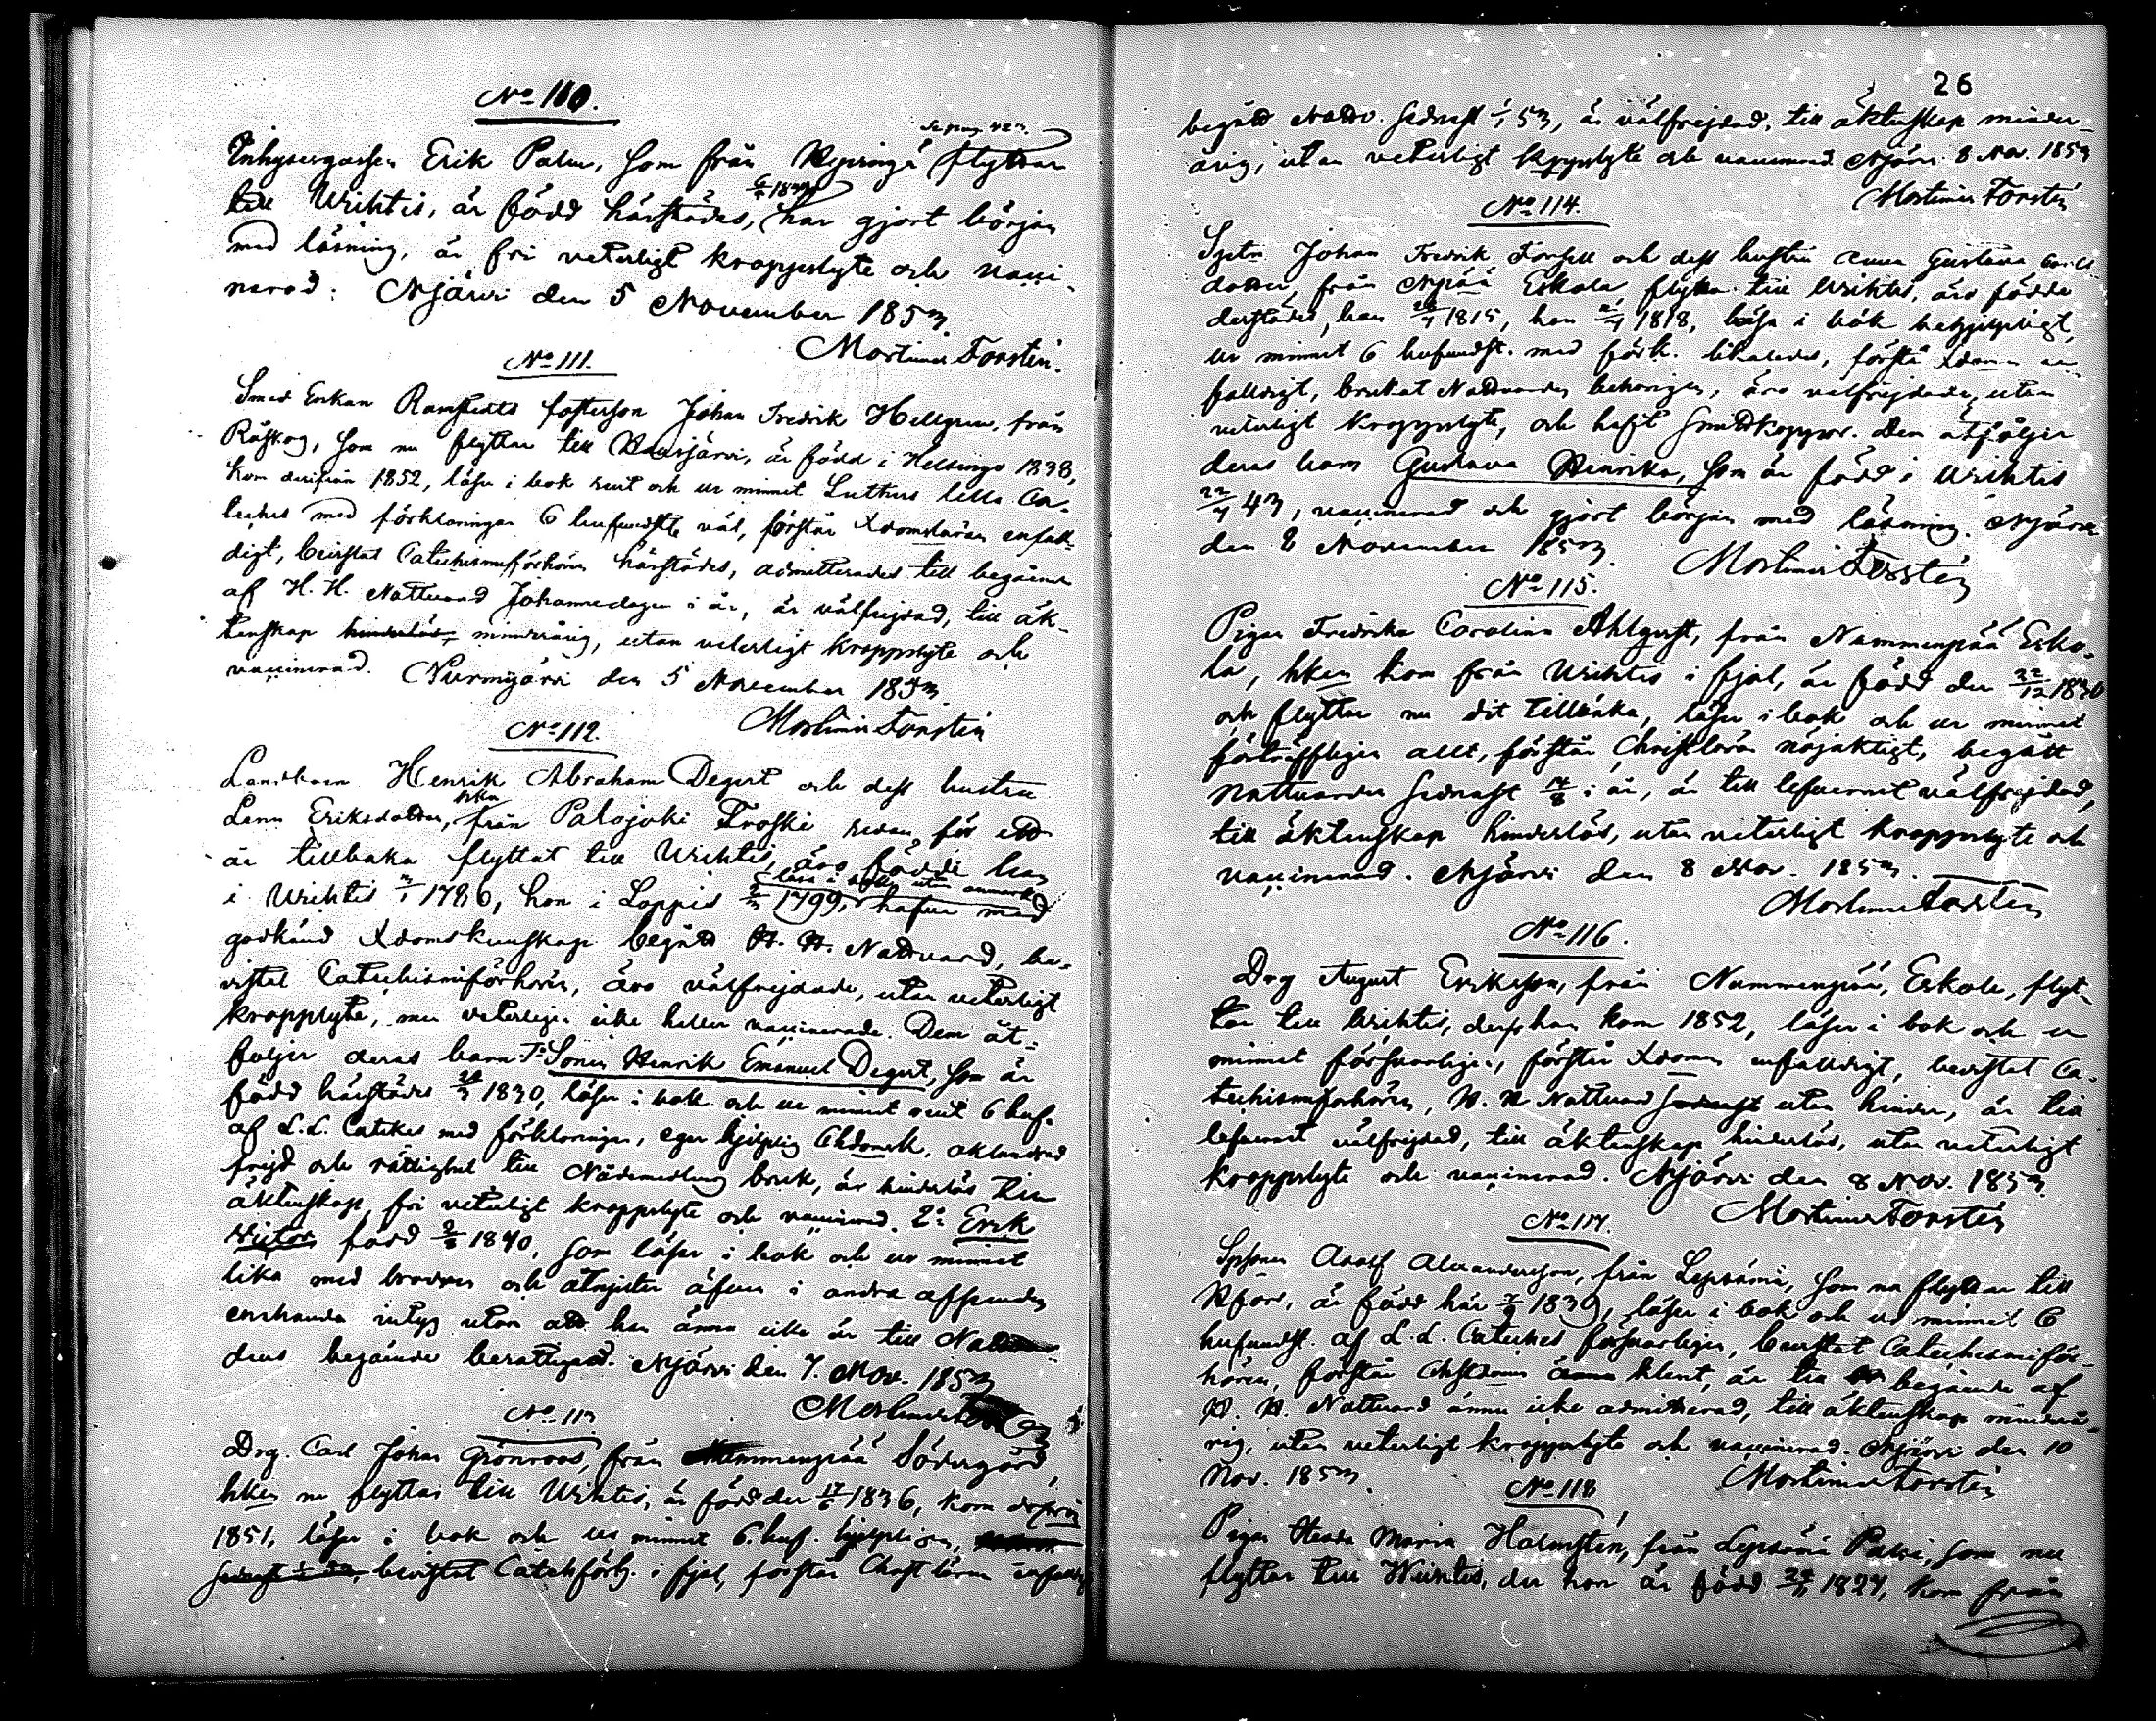 No 110.
Se pag. 42
Inhysegossen Erik Palm, som från flyttar
till Wichtis, är född härstädes, har gjort början
med läsning, är fri veterligt kroppslyte och vacci-
nerad. Njärvi den 5 November 1853.
Mortimer Forstén.
No 111.
Smed Enkan Ramstedts fosterson Johan Fredrik Hellgren, från
Råskog, som nu flyttar till Hausjärvi, är född i Helsinge 1838,
kom derifrån 1852, läser i bok rent och ur minnet Luthers lilla Ca-
teches med förklaringen 6 hufvudst. väl, förstår Xdomsläran enfal-
digt, bevistat Catechismiförhören härstädes, admitterades till begående
af H. H. Nattvard Johannedagen i år, är välfrejdad, till äk-
tenskap hinderlös, minderårig, utan veterligt kroppslyte och
vaccinerad. Nurmijärvi den 5 November 1853.
Mortimer Forstén
No 112.
Landtbon Henrik Abraham Degert och dess hustru
Lena Eriksdotter, hka från Palojoki Froski redan för ett
år tillbaka flyttat till Wichtis, äro födde han
i Wichtis 1786, hon i Loppis 1799, läsa i bok utan anmärk. hafva med
godkänd Xdomskunskap begått H. H. Nattvard, be-
vistat Catechismiförhören, äro välfrejdade, utan veterligt
kroppslyte, men veterligen icke heller vaccinerade. Dem åt-
följer deras barn 1o Sonen Henrik Emanuel Degert, som är
född härstädes 1830, läser i bok och ur minnet rent 6 huf.
af L. L. Cateches med förklaringen, eger hjelplig Chdomsk. oklandrad
frejd och rättighet till Nådemedlens bruk, är hinderlös till
äktenskap, fri veterligt kroppslyte och vaccinerad. 2o Erik
Victor född 1840, som läser i bok och ur minnet
lika med brodren och åtnjuter äfven i andra afseenden
enahanda intyg utom att han ännu icke är till Nattvar-
dens begående berättigad. Njärvi den 7. Nov. 1853
Mortimer Forstén
No 113
Drg. Carl Johan Grönroos, från Nummenpää Södergård,
hken nu flyttar till Wichtis, är född der 17/6 1836, kom derifrån
1851, läser i bok och ur minnet 6. huf. hjelpligen,
bevistat Catekförh. i fjol, förstår Christläran enfaldigt
26
begått Nattv. sednast 53, är välfrejdad, till äktenskap minder-
årig, utan veterligt kroppslyte och vaccinerad. Njärvi 8 Nov. 1853
Mortimer Forstén
No 114.
Sytn Johan Fredrik Forsell och dess hustru Anna Gustava Carls-
dotter, från Npää Eskola flytta till Wichtis, äro födda
derstädes, han 1815, hon 1818, läsa i bok behjelpligt,
ur minnet 6 hufvudst. med förk. likaledes, förstå Xdomen en-
faldigt, brukat Nattvarden behörigen, äro välfrejdade, utan
veterligt kroppslyte, och haft smittkoppor. Dem åtföljer
deras barn Gustava Henrika, som är född i Wichtis
43, vaccinerad och gjort början med läsning. Njärvi
den 8 November 1853.
Mortimer Forstén
No 115.
Pigan Fredrika Carolina Ahlqvist, från Nummenpää Esko-
la, hken kom från Wichtis i fjol, är född der 22/12 1830
och flyttar nu dit tillbaka, läser i bok och ur minnet
förträffligen allt, förstår Christläran nöjaktigt, begått
Nattvarden sednast 14/8 i år, är till lefvernet välfrejdad,
till äktenskap hinderlös, utan veterligt kroppslyte och
vaccinerad. Njärvi den 8 Nov. 1853.
Mortimer Forstén
No 116.
Drg August Eriksson, från Nummenpää, Eskola, flyt-
tar till Wichtis, derifrån han kom 1852, läser i bok och ur
minnet försvarligen, förstår Xdomen enfaldigt, bevistat Ca-
techismiförhören, H. H. Nattvard sednast utan hinder, är till
lefvernet välfrejdad, till äktenskap hinderlös, utan veterligt
kroppslyte och vaccinerad. Njärvi den 8 Nov. 1853.
Mortimer Forstén
No 117.
Spsonen Adolf Alexandersson, från Lepsämä, som nu flyttar till
Hfors, är född här 1839, läser i bok och ur minnet 6
hufvudst. af L. L. Cateches försvarligen, bevistat Catechismiför-
hören, förstår Chstdomen ännu klent, är till begående af
H. H. Nattvard ännu icke admitterad, till äktenskap minderå-
rig, utan veterligt kroppslyte och vaccinerad. Njärvi den 10
Nov. 1853.
Mortimer Forstén
No 118
Pigan Heada Maria Holmstén, från Lepsämä Passi, som nu
flyttar till Wichtis, der hon är född 1827, kom från